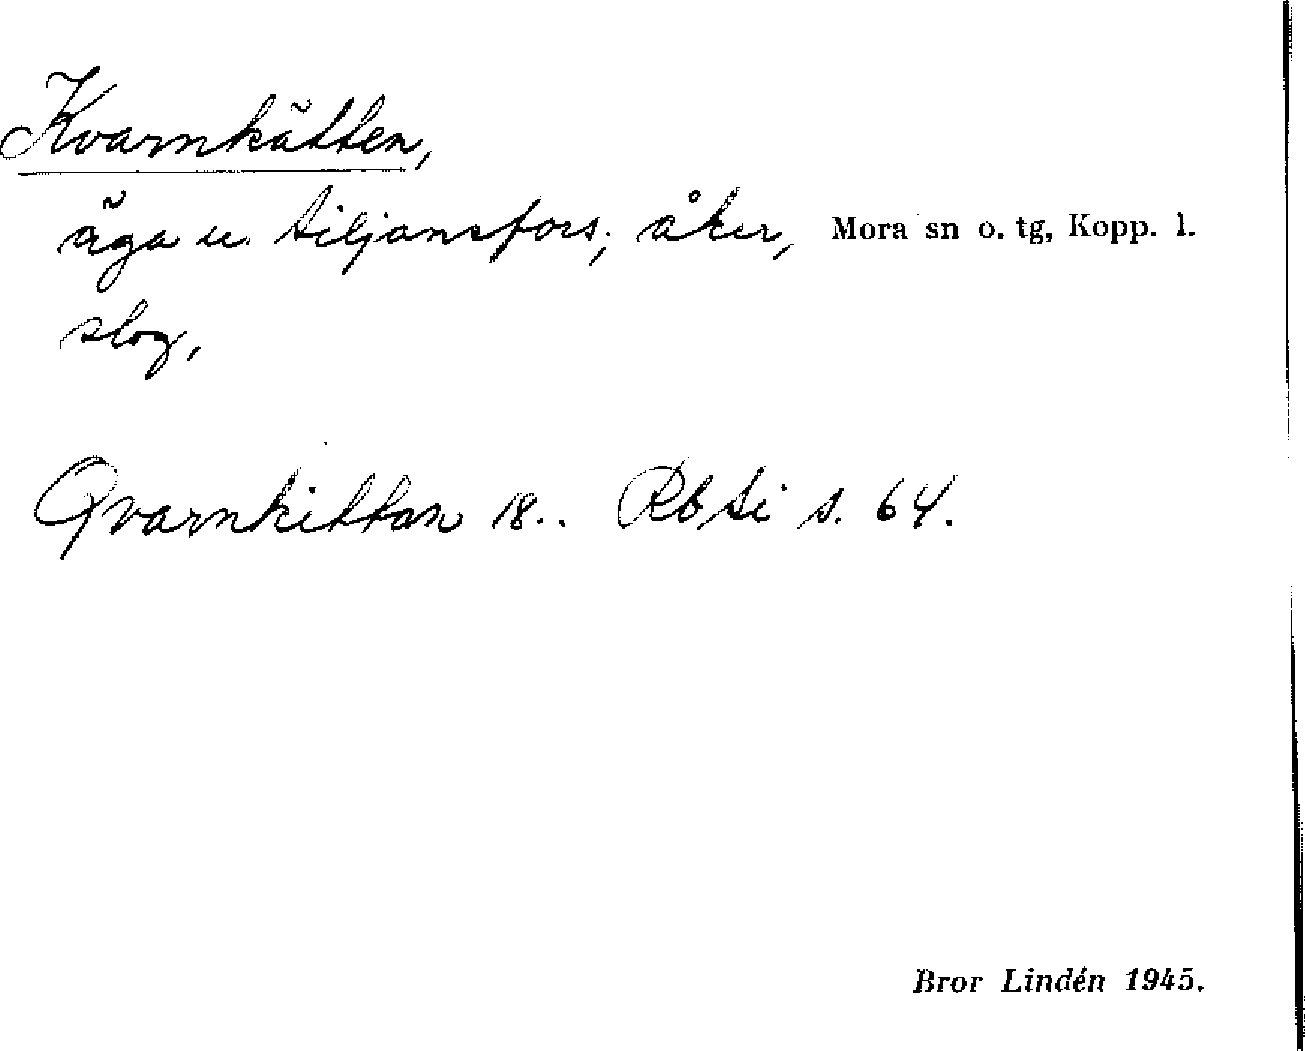 Kvarnkätten,
äga u. Siljansfors; åker, Mora sn o. tg, Kopp. l.
slog,
Qvarnkittan 18.. Rb Si s. 64.
Bror Lindén 1945.